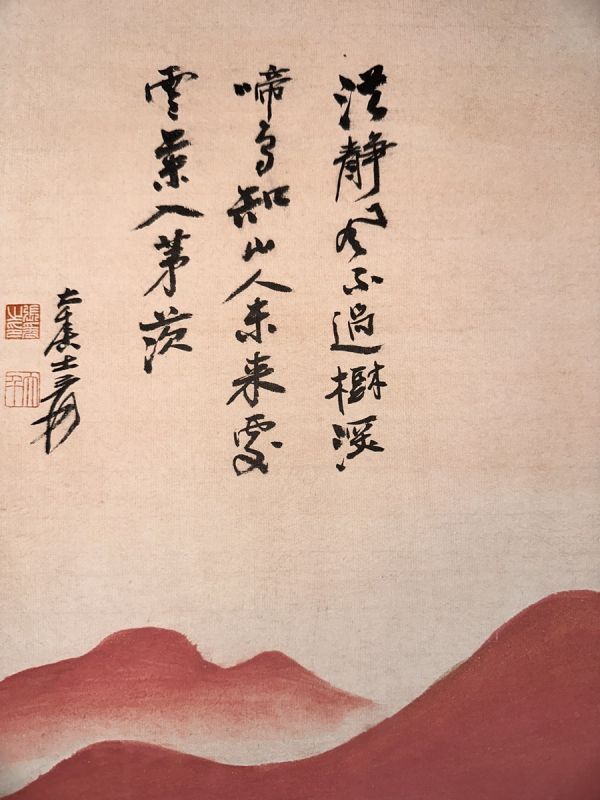 静不過樹深
啼鳥知山人未來處
雲葉入茅茨
大千居士爰
張爰之印
大千